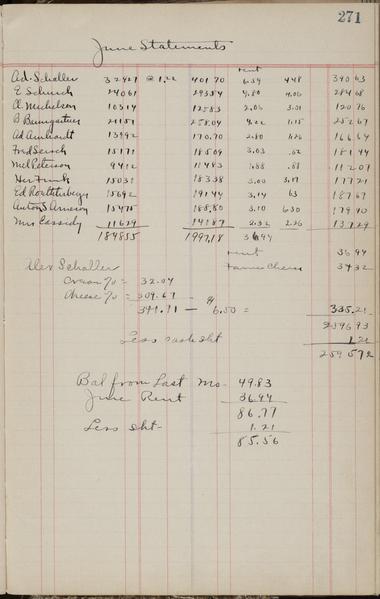 271
June Statements
rent
Ad. Schaller 32921 @ 1.22 401 70 6.59 448 390 63
E Schirch 24061 293 54 4.80 4.06 284 68
A. Michelson 10314 125 83 2.06 3.01 120 76
B Baumgartner 21151 258 04 4.22 1.15 252 67
Ad Arnhardt 13992 170.70 2.80 1.26 166 64
Fred Seisch 15171 185 09 3.03 .62 181 44
Mel Peterson 9412 114 83 1.88 .88 112 07
15031 183 38 3.00 3.17 177 21
15692 191 44 3.14 .63 187 67
Anton S Arneson 15475 188.80 3.10 6.30 179 40
Mrs Cassidy 11629 141 87 2.32 2.26 137 29
184855 1997,18 36 94
rent 36 94
34 32
Alex Schaller
Cream % = 32.04
Cheese % = 309.67
341.71 — 6.50 = 335.21
2596 93
Less cash sht 1.21
2595 72
Bal from Last Mo. 49.83
June Rent 36.94
86.77
Less sht - 1.21
85.56